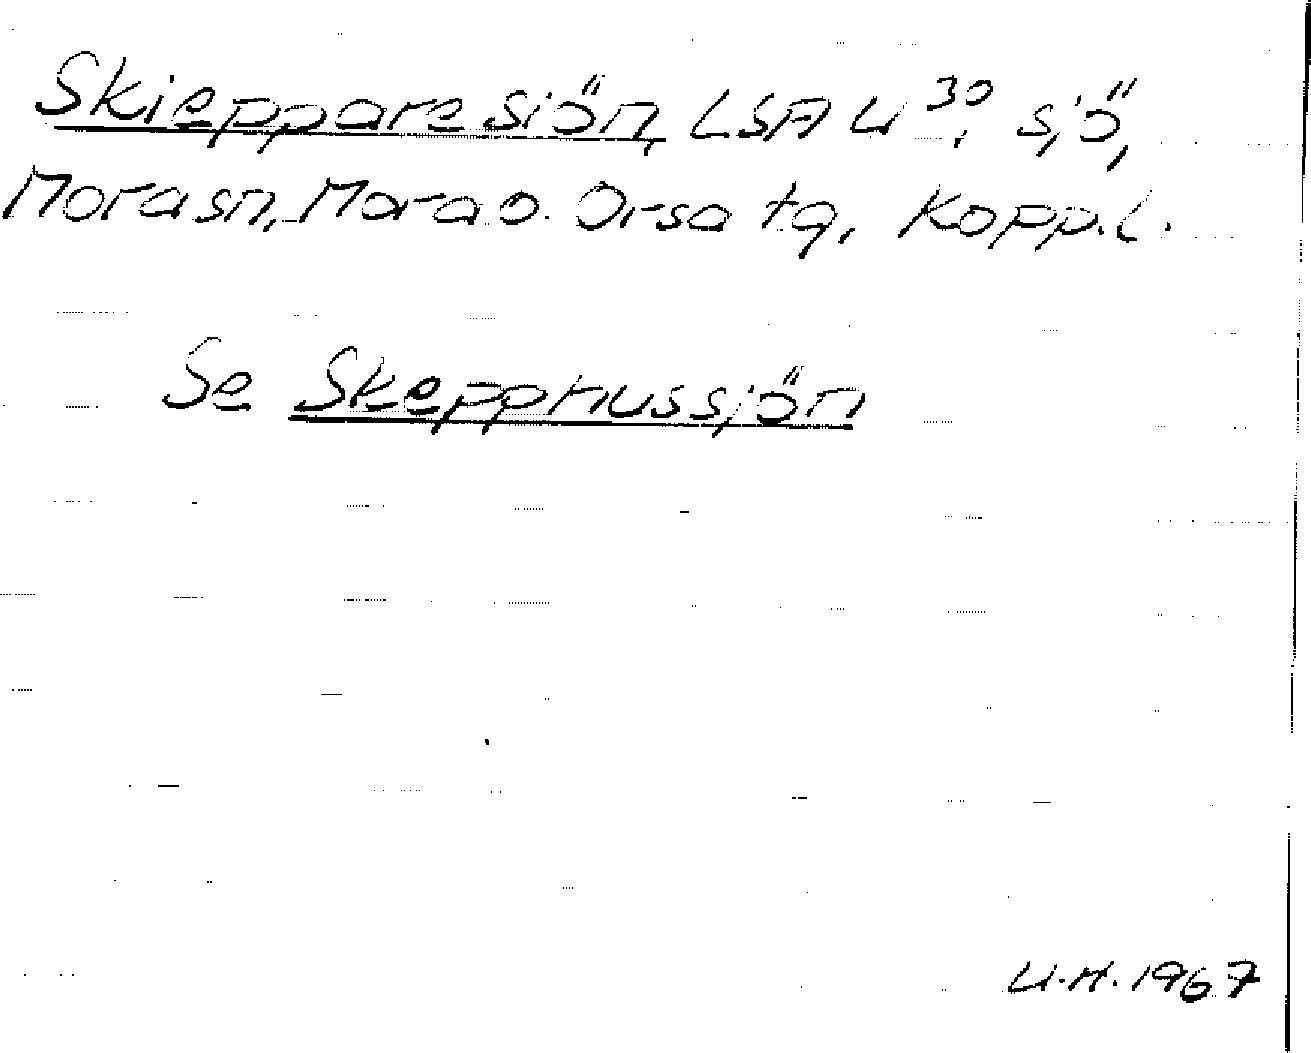 Skieppare siön, LSA U³⁰, sjö,
Mora sn, Mora o. Orsa tg, Kopp. l.
Se Skepphussjön
U.H. 1967